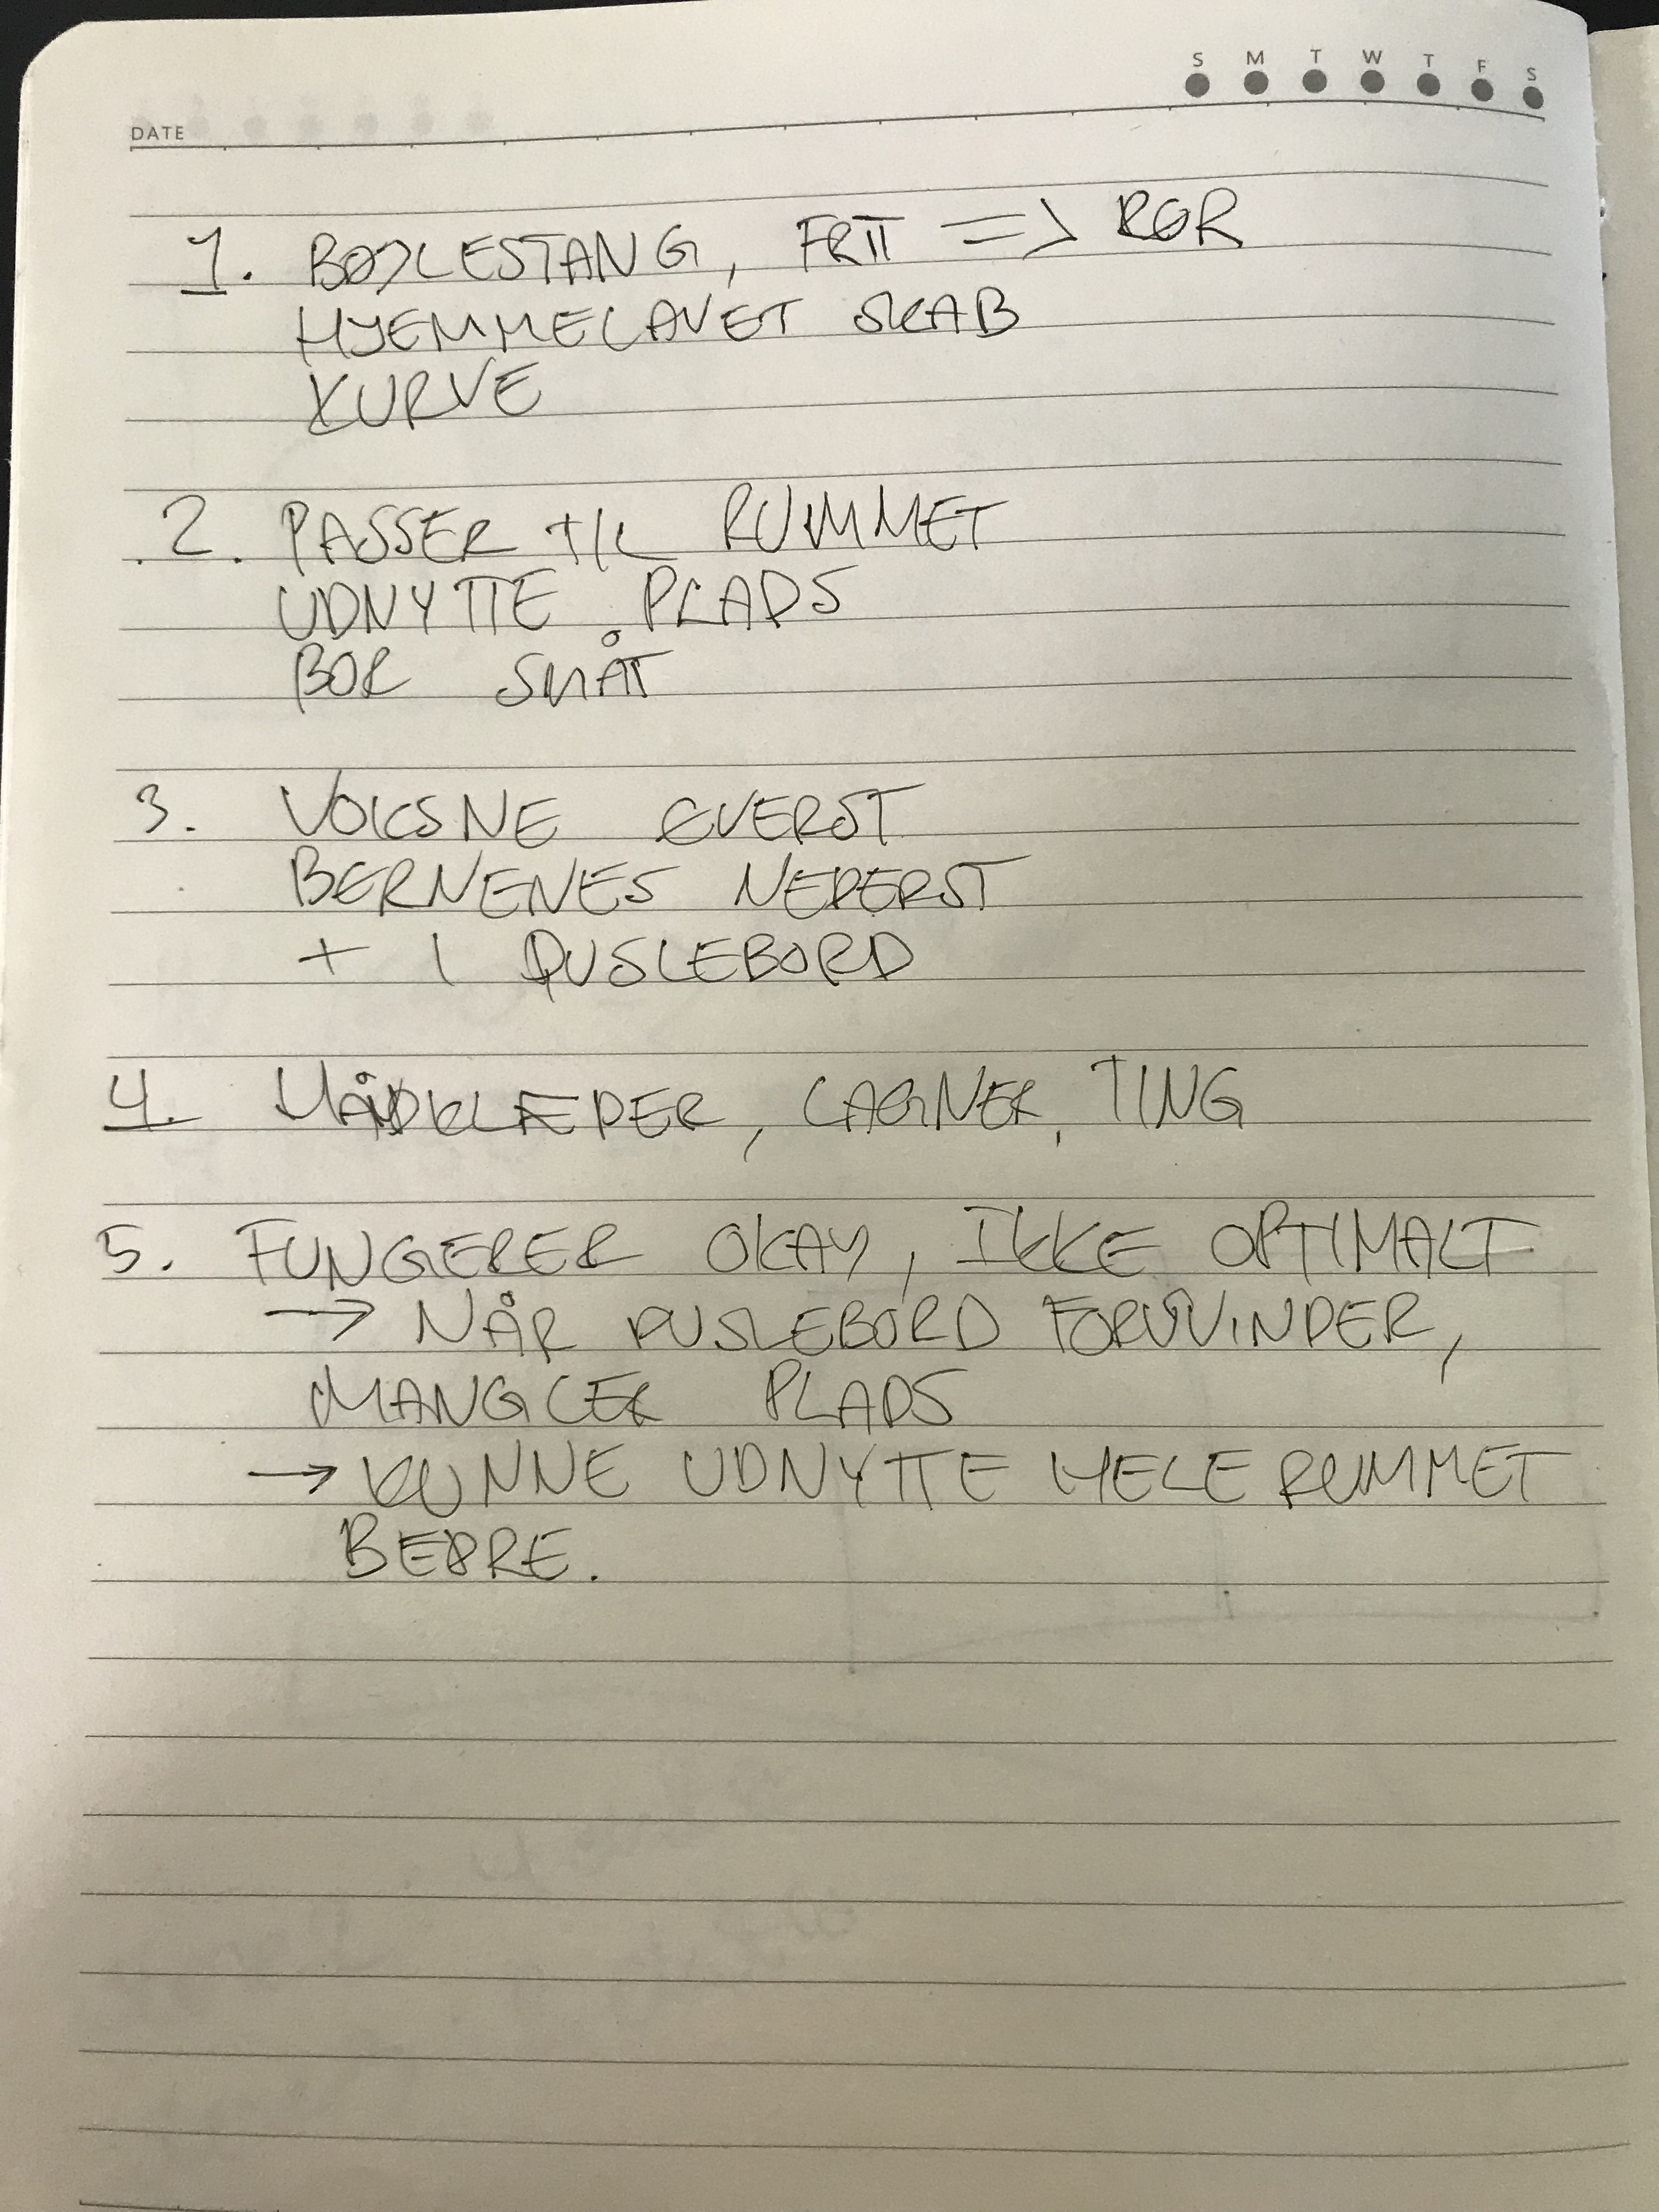 S M T W T F S
DATE
1. BØJLESTANG, FRIT => RØR
HJEMMELAVET SKAB
KURVE
2. PASSER TIL RUMMET
UDNYTTE PLADS
BOR SMÅT
3. VOKSNE ØVERST
BØRNENES NEDERST
+ 1 PUSLEBORD
4. HÅNDKLÆDER, LAGNER, TING
5. FUNGERER OKAY, IKKE OPTIMALT
→ NÅR PUSLEBORD FORSVINDER,
MANGLER PLADS
→ KUNNE UDNYTTE HELE RUMMET
BEDRE.